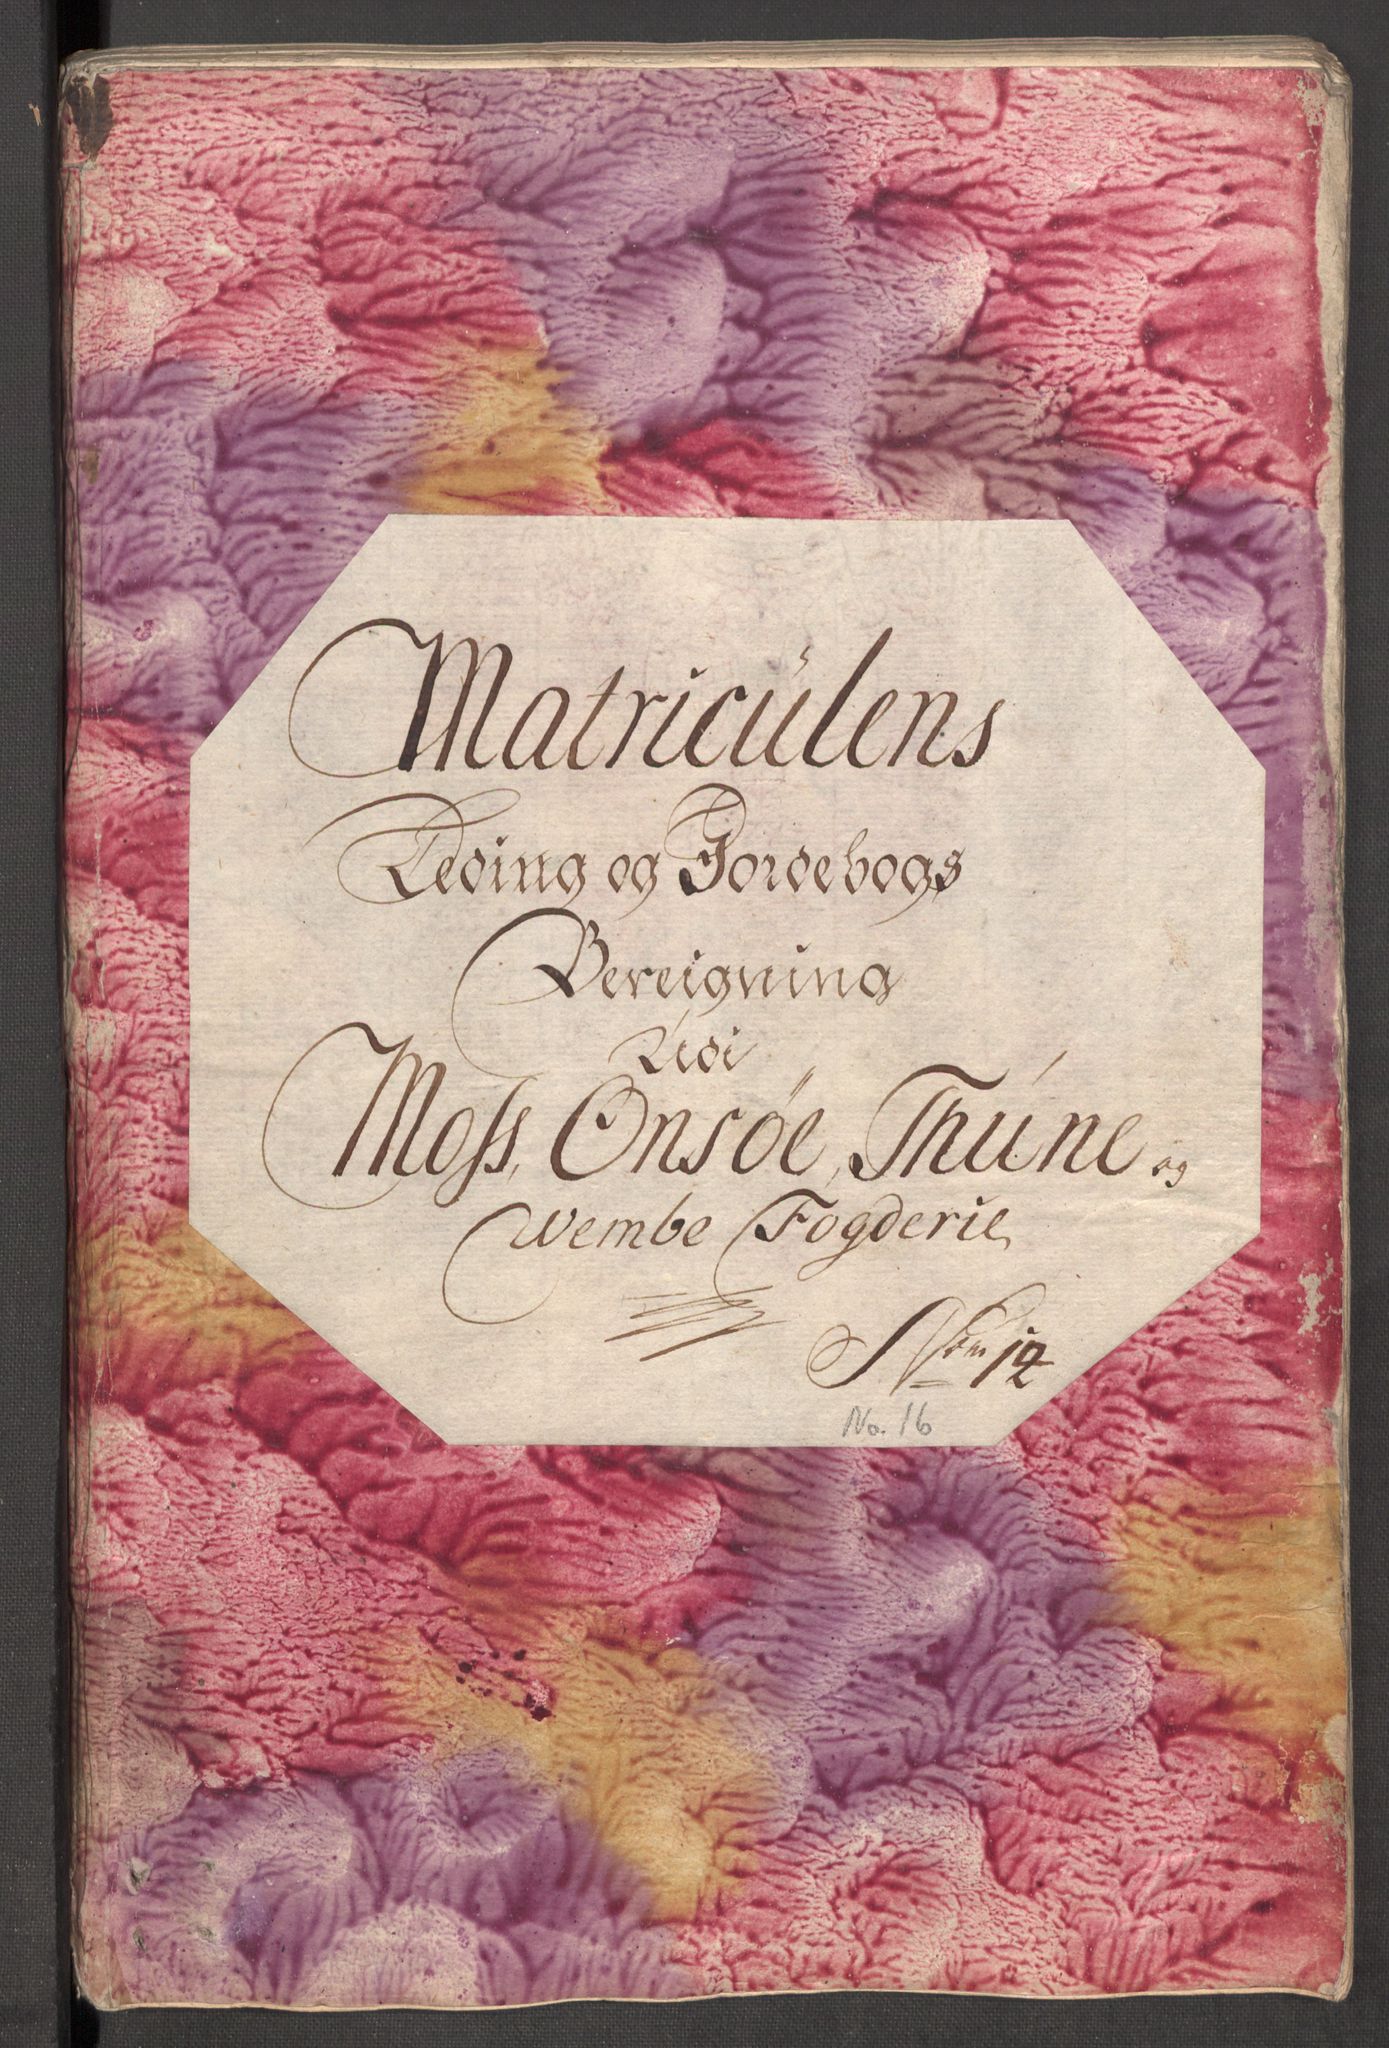 Matriculens
Leding og Jordebogs
Bereigning
Udi
Moss, Onsöe, Thune og
Wembe Fogderie
12
No. 16